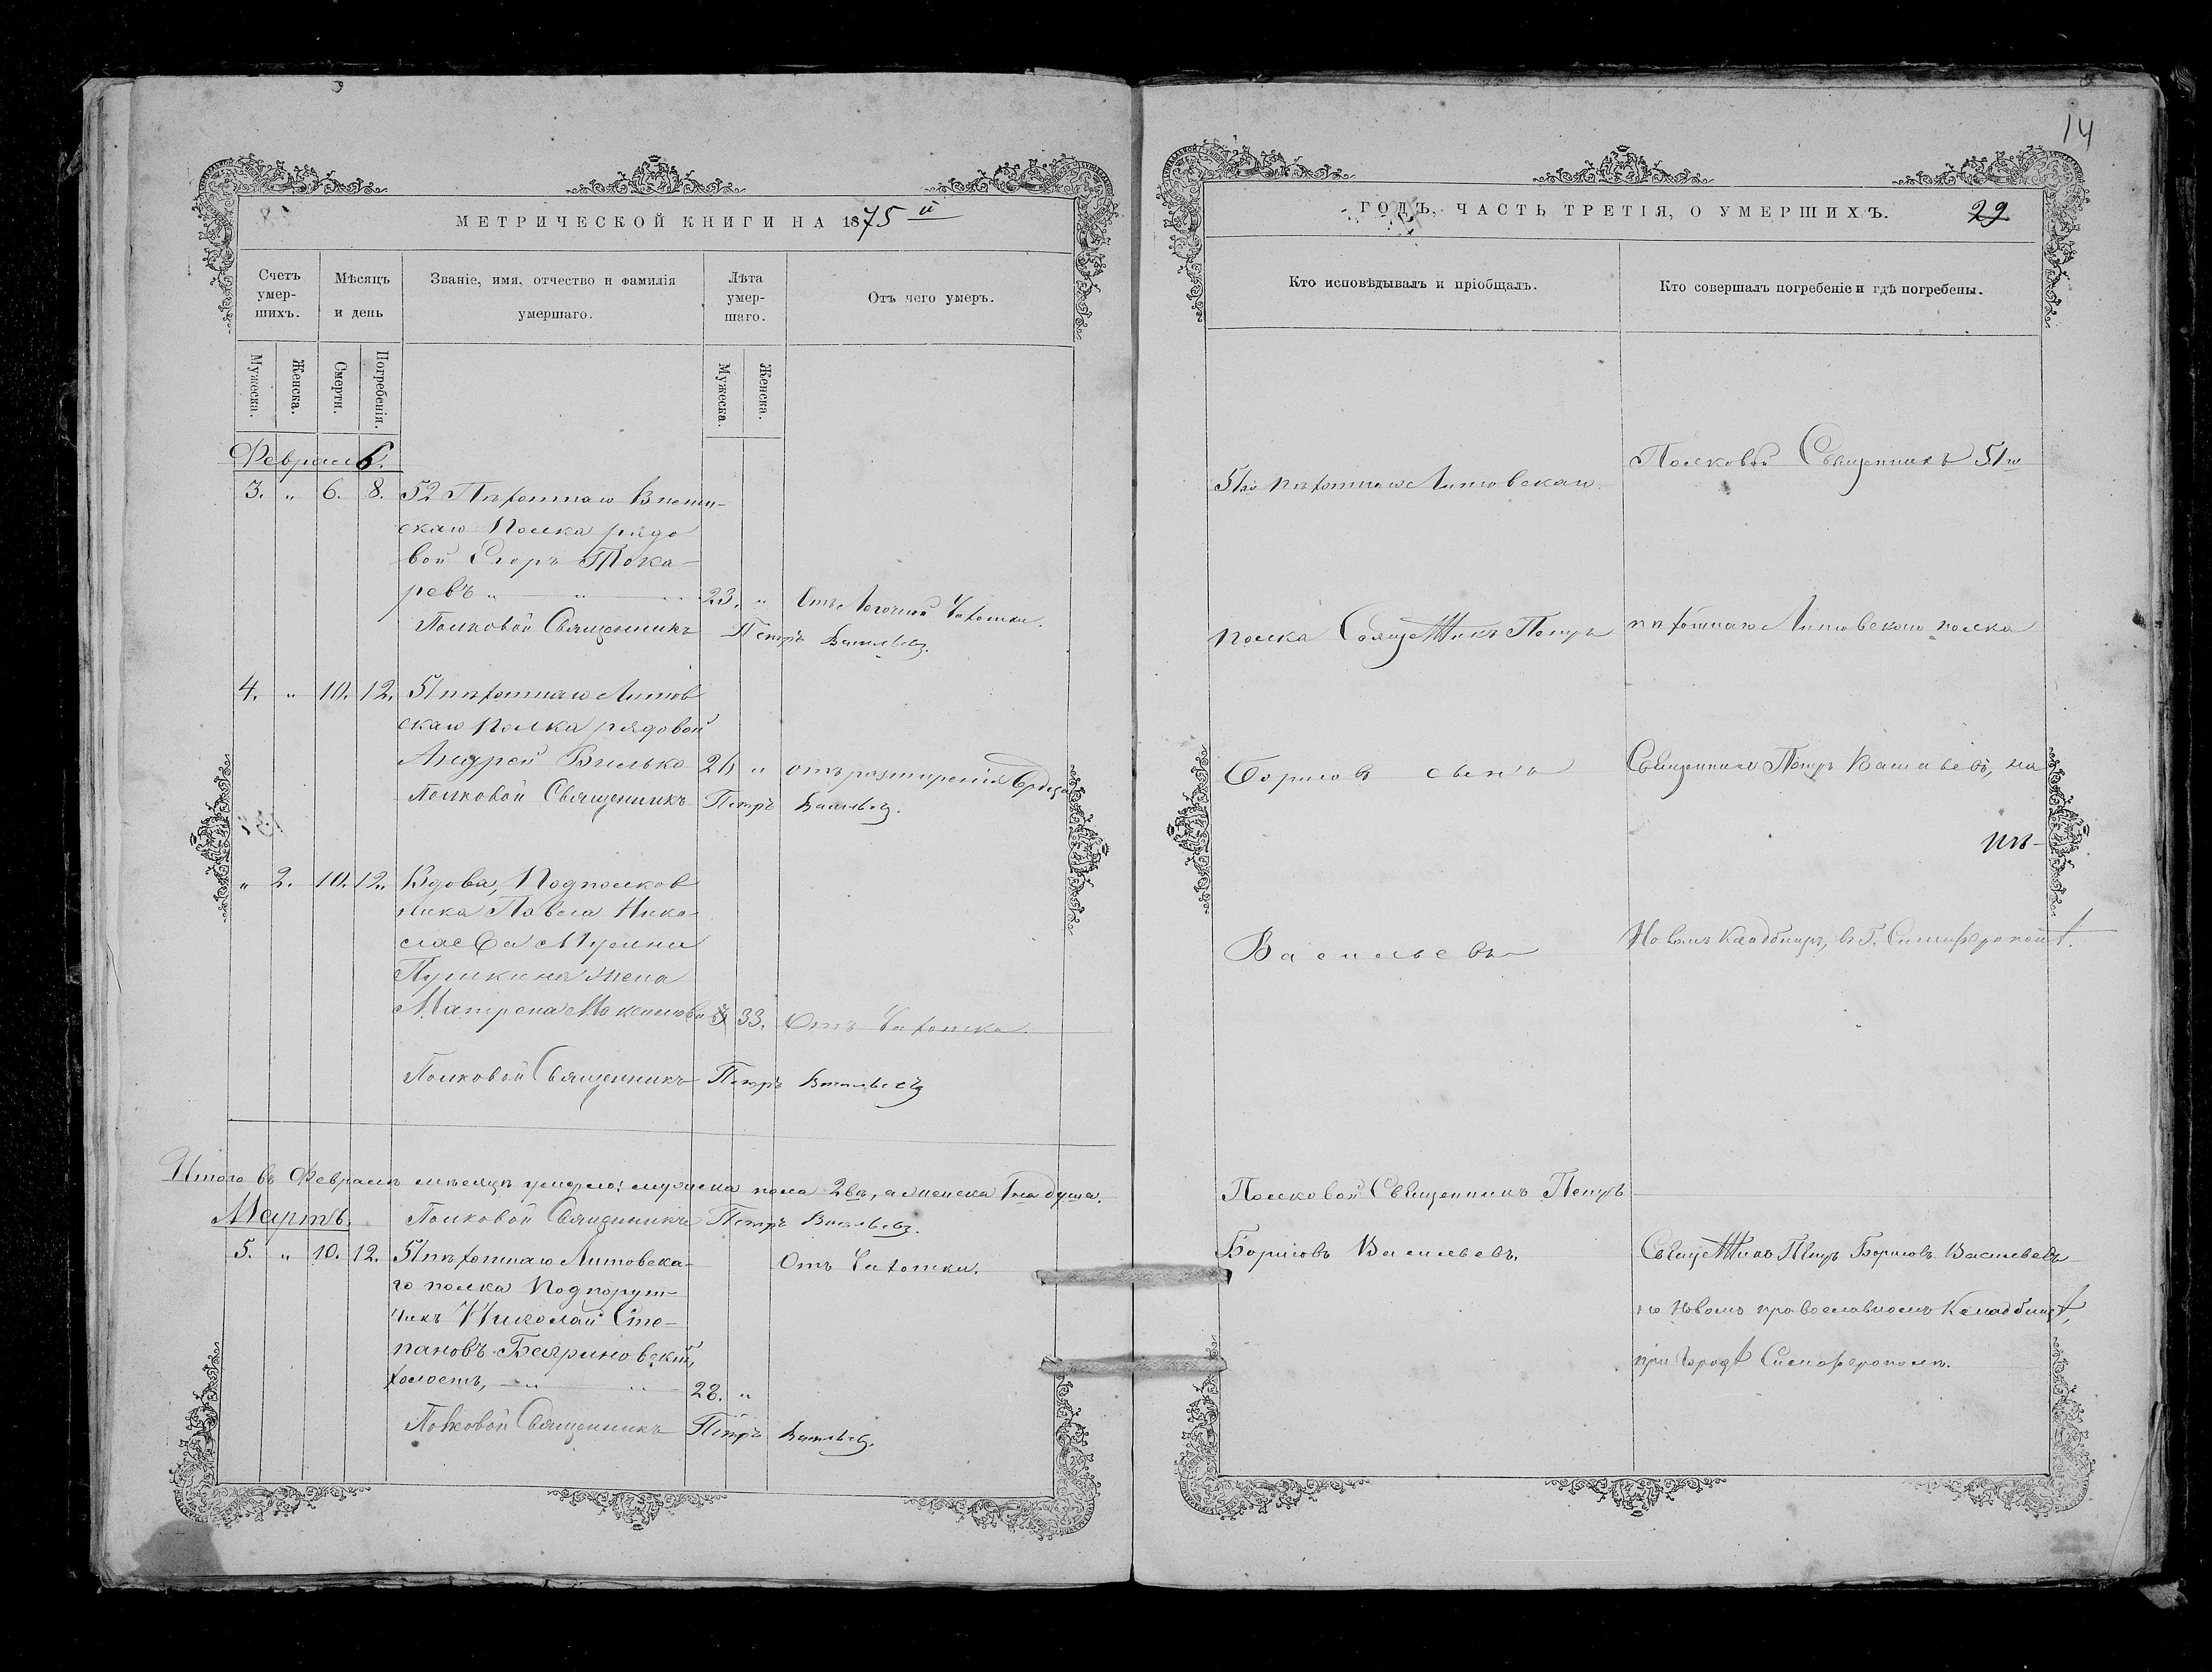 14
МЕТРИЧЕСКОЙ КНИГИ НА 1875 й
Счетъ умер-шихъ.
Мѣсяцъ и день
Званіе, имя, отчество и фамилія умершаго.
Лѣта умер-шаго.
Отъ чего умеръ.
Мужеска.
Женска.
Смерти.
Погребенія.
Мужеска.
Женска.
Февраль.
3. „ 6. 8. 52 Пѣхотнаго Вилен-
скаго Полка рядо
вой Егоръ Тока-
ревъ „ „ 23. „ Отъ Легочной Чахотки.
Полковой Священникъ Петръ Васильевъ.
4. „ 10. 12. 51 пѣхотнаго Литов
скаго полка рядовой
Андрей Вилько 26 „ отъ разширенія Сердца
Полковой Священникъ Петръ Васильевъ.
„ 2. 10. 12. Вдова, Подполков
ника Павла Нико-
лаева Мусина
Пушкина жена
Матрена Максимова 33. Отъ Чахотки
Полковой Священникъ Петръ Васильевъ
Итого въ Февралѣ мѣсяцѣ умерло: мужеска пола 2ва, а женска 1на душа.
Мартъ. Полковой Священникъ Петръ Васильевъ.
5. „ 10. 12. 51 пѣхотнаго Литовска- Отъ Чахотки.
го полка Подпоруч-
икъ Николай Сте-
пановъ Багриновскій,
холостъ, „ „ 28. „
Полковой Священникъ Петръ Васильевъ.
ГОДЪ, ЧАСТЬ ТРЕТІЯ, О УМЕРШИХЪ. 29
Кто исповѣдывалъ и пріобщалъ.
Кто совершалъ погребеніе и гдѣ погребены.
51го пѣхотнаго Литовскаго
полка Священникъ Петръ
Борисовъ сынъ
Васильевъ
Полковой Священникъ 51го
пѣхотнаго Литовскаго полка
Священникъ Петръ Васильевъ, на
Новомъ Кладбищѣ, въ Г. Симферополѣ.
Полковой Священникъ Петръ
Борисовъ Васильевъ.
Священникъ Петръ Борисовъ Васильевъ
на Новомъ православномъ Кладбищѣ,
при Городѣ Симферополѣ.